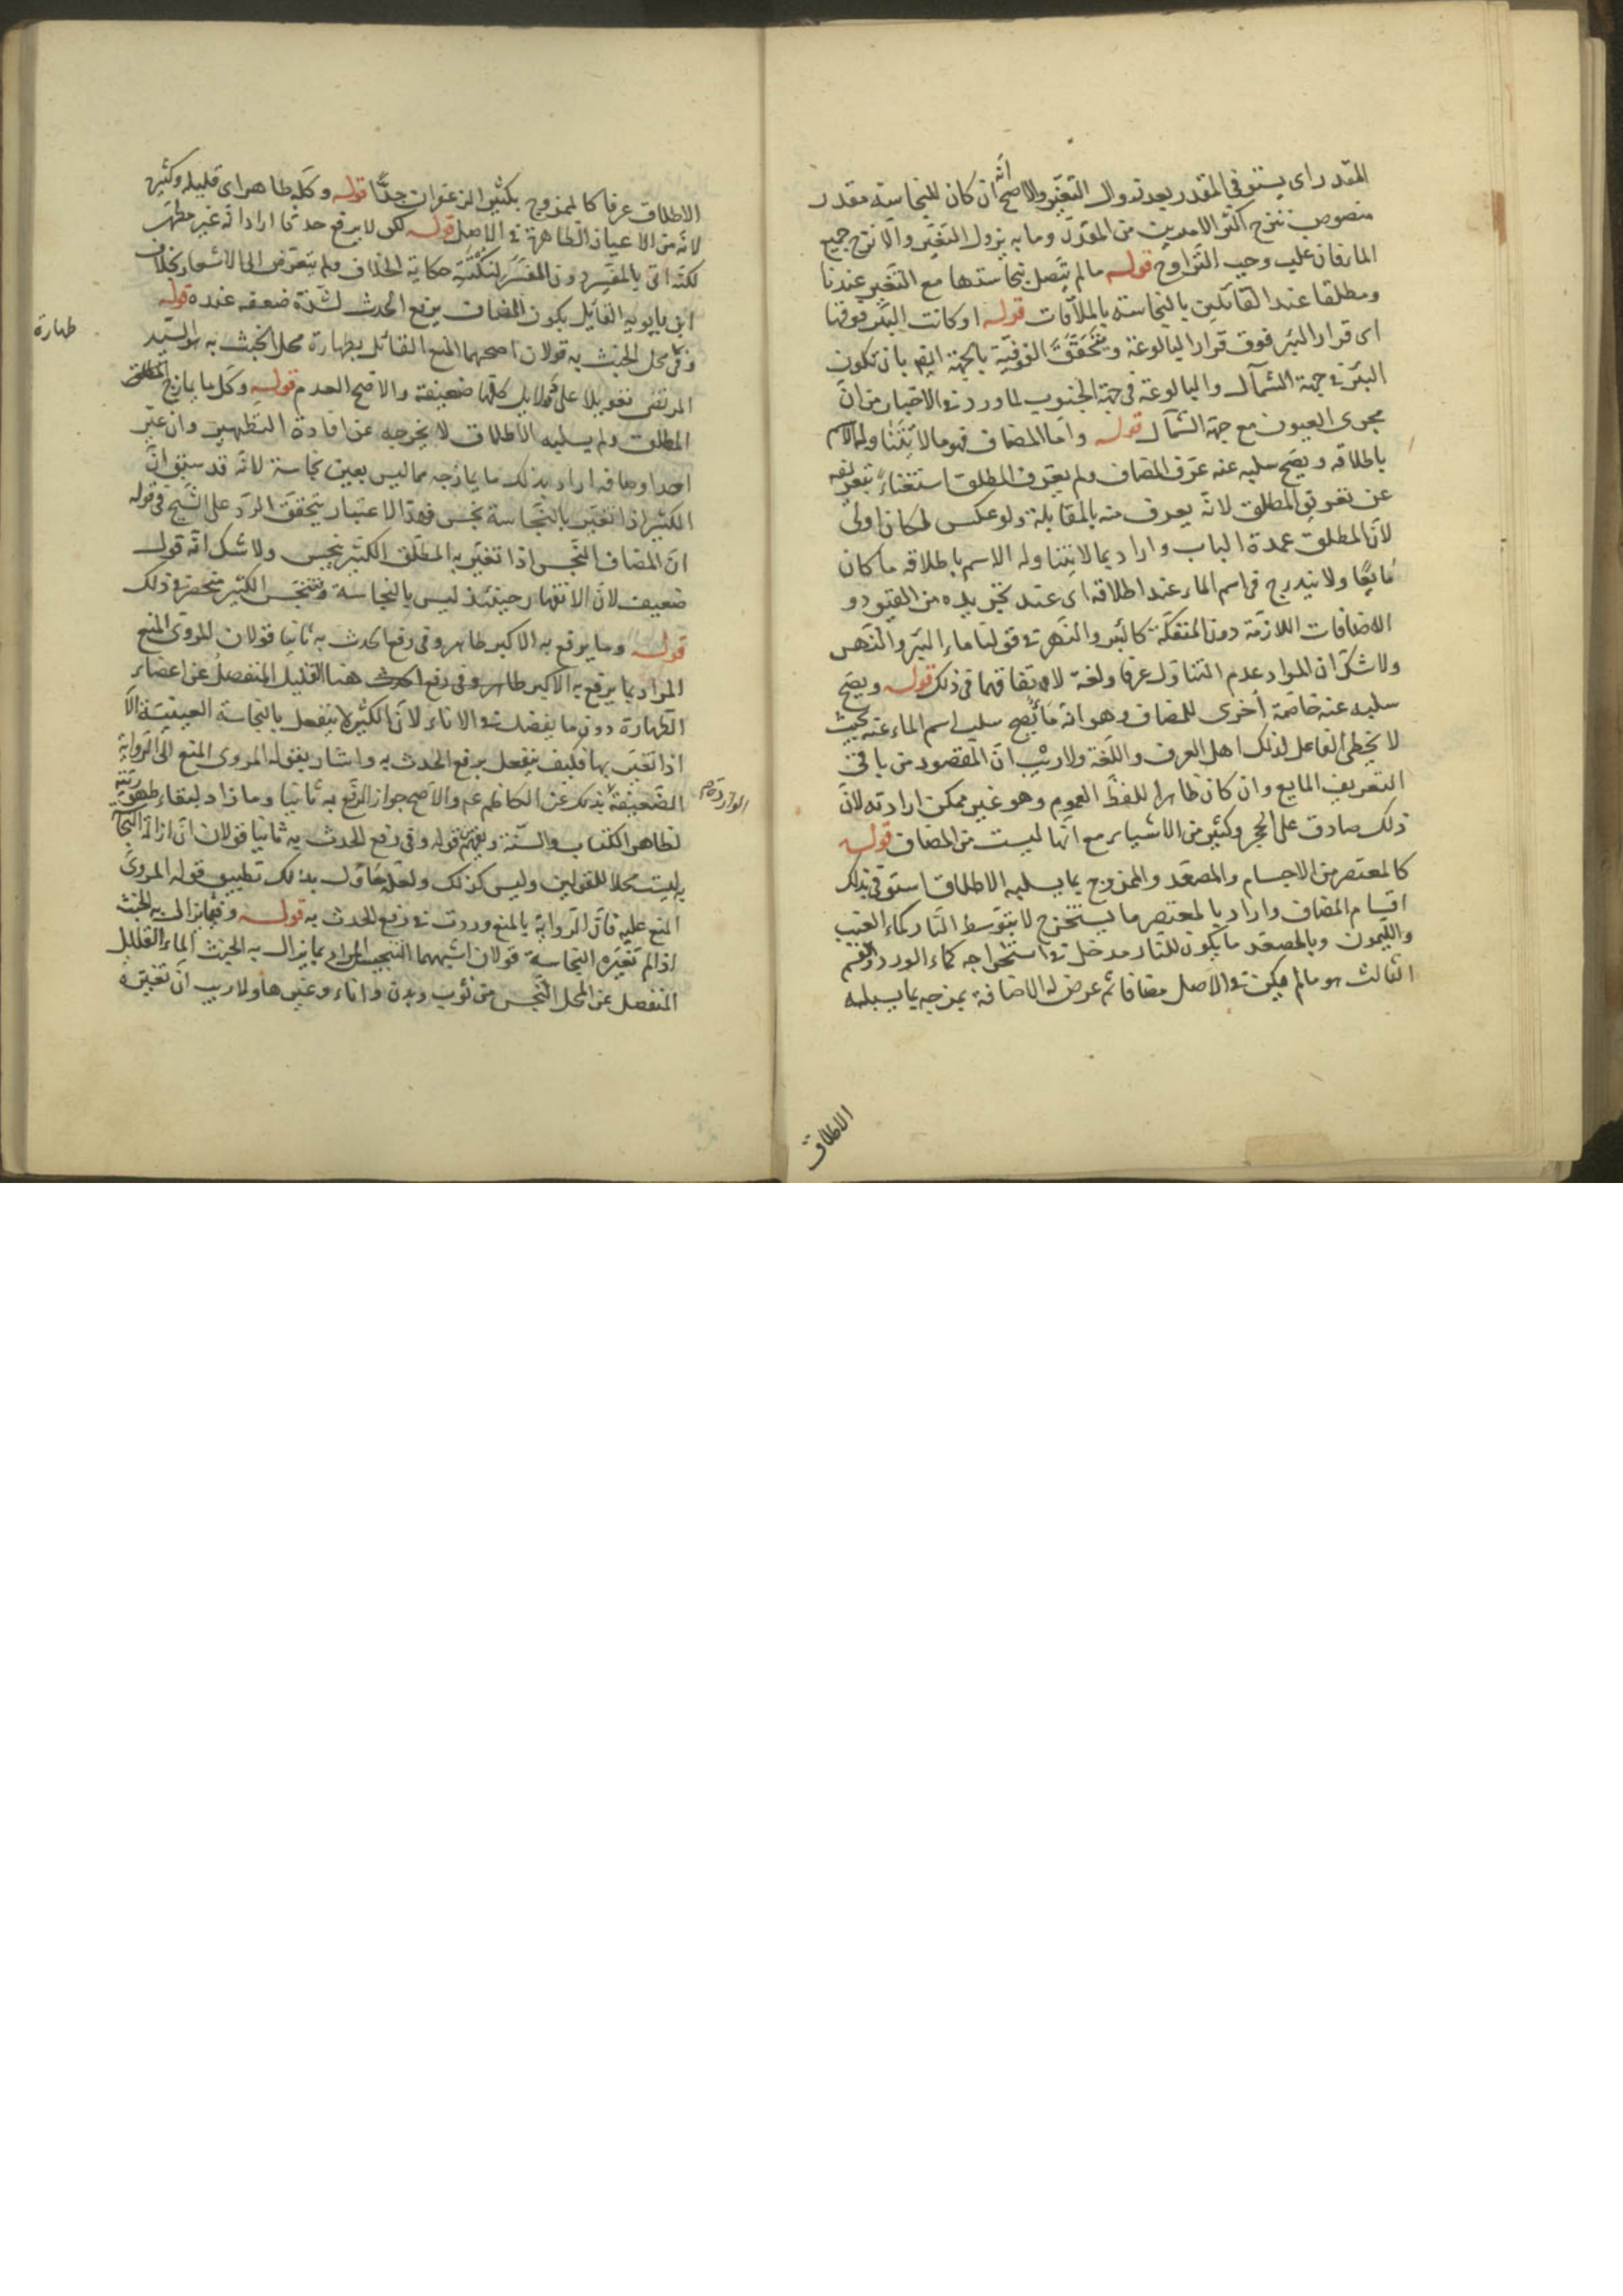 المقدر اى يستوفى المقدر بعد زوال التغير والاصح انه ان كان للنجاسة مقدر
منصوص نزح اكثر الامرين من المقدر وما به يزول التغير والا نزح جميع
الماء فان غلب وجب التراوح قوله ما لم يتصل نجاستها مع التغير عندنا
ومطلقا عند القائلين بالنجاسة بالملاقات قوله او كانت البئر فوقها
اى قرار البئر فوق قرار البالوعة ويتحقق الفوقية بالجهة ايضا بان تكون
البئر فى جهة الشمال والبالوعة فى جهة الجنوب لما ورد فى الاخبار من ان
مجرى العيون مع جهة الشمال قوله واما المضاف فهو ما لا يتناوله الاسم
باطلاقه ويصح سلبه عنه عرف المضاف ولم يعرف المطلق استغناء بتعريفه
عن تعريف المطلق لانه يعرف منه بالمقابلة ولو عكس لكان اولى
لان المطلق عمدة الباب واراد بما لا يتناوله الاسم باطلاقه ما كان
مايعا ولا يندرج فى اسم الماء عند اطلاقه اى عند تجريده من القيود و
الاضافات اللازمة دون المنفكة كالبئر والنهر فى قولنا ماء البئر والنهر
ولا شك ان المراد عدم التناول عرفا ولغة لاتفاقهما فى ذلك قوله ويصح
سلبه عنه خاصة اخرى للمضاف وهو انه ما يصح سلب اسم الماء عنه بحيث
لا يخطى الفاعل لذلك اهل العرف واللغة ولا ريب ان المقصود من باقى
التعريف المايع وان كان ظاهر اللفظ العموم وهو غير ممكن ارادته لان
ذلك صادق على الحجر وكثير من الاشياء مع انها ليست من المضاف قوله
كالمعتصر من الاجسام والمصعد والممزوج بما يسلبه الاطلاق استوفى بذلك
اقسام المضاف واراد بالمعتصر ما يستخرج لا بتوسط النار كماء العنب
والليمون وبالمصعد ما يكون للنار مدخل فى استخراجه كماء الورد والقسم
الثالث هو ما لم يكن فى الاصل مضافا ثم عرض له الاضافة بمزجه بما يسلبه
الاطلاق
الاطلاق عرفا كالممزوج بكثير الزعفران جدا قوله وكله طاهر اى قليله وكثيره
لانه من الاعيان الطاهرة فى الاصل قوله لكن لا يرفع حدثا اراد انه غير مطهر
لكنه اتى بالمفسر دون المفسر لنكتة حكاية الخلاف ولم يتعرض الى الاشعار بخلاف
ابن بابويه القائل بكون المضاف يرفع الحدث لشدة ضعفه عنده قوله
وفى محل الخبث به قولان اصحهما المنع القائل بطهارة محل الخبث به السيد
طهارة
المرتضى تعويلا على دلايل كلها ضعيفة والاصح العدم قوله وكل ما يمازج المطلق
المطلق ولم يسلبه الاطلاق لا يخرجه عن افادة التطهير وان غير
احد اوصافه اراد بذلك ما يمازجه مما ليس بعين نجاسة لانه قد سبق ان
الكثير اذا تغير بالنجاسة نجس فبهذا الاعتبار يتحقق الرد على الشيخ فى قوله
ان المضاف النجس اذا تغير به المطلق الكثير نجس ولا شك انه قول
ضعيف لان الانقهار حينئذ ليس بالنجاسة وتنجس الكثير منحصر فى ذلك
قوله وما يرفع به الاكبر طاهر وفى رفع الحدث به ثانيا قولان المروى المنع
المراد بما يرفع به الاكبر طاهر وفى رفع الحدث هنا القليل المنفصل عن اعضاء
الطهارة دون ما يفضل فى الاناء لان الكثير لا ينفعل بالنجاسة العينية الا
اذا تغير بها فكيف ينفعل برفع الحدث به واشار بقوله المروى المنع الى الرواية
الضعيفة بذلك عن الكاظم عم والاصح جواز الرفع به ثانيا وما زاد لبقاء طهوريته
الواردة
لظاهر الكتاب والسنة ويفهم من قوله وفى رفع الحدث به ثانيا قولان ان ازالة النجاسة
به ليست محلا للقولين وليس كذلك ولعله حاول بذلك تطبيق قوله المروى
المنع عليه فان الرواية بالمنع وردت فى رفع الحدث به قوله وفيما يزال به الخبث
اذا لم تغيره النجاسة قولان اشبههما التنجيس المراد بما يزال به الخبث الماء القليل
المنفصل عن المحل النجس من ثوب وبدن واناء وغيرها ولا ريب ان تغيره